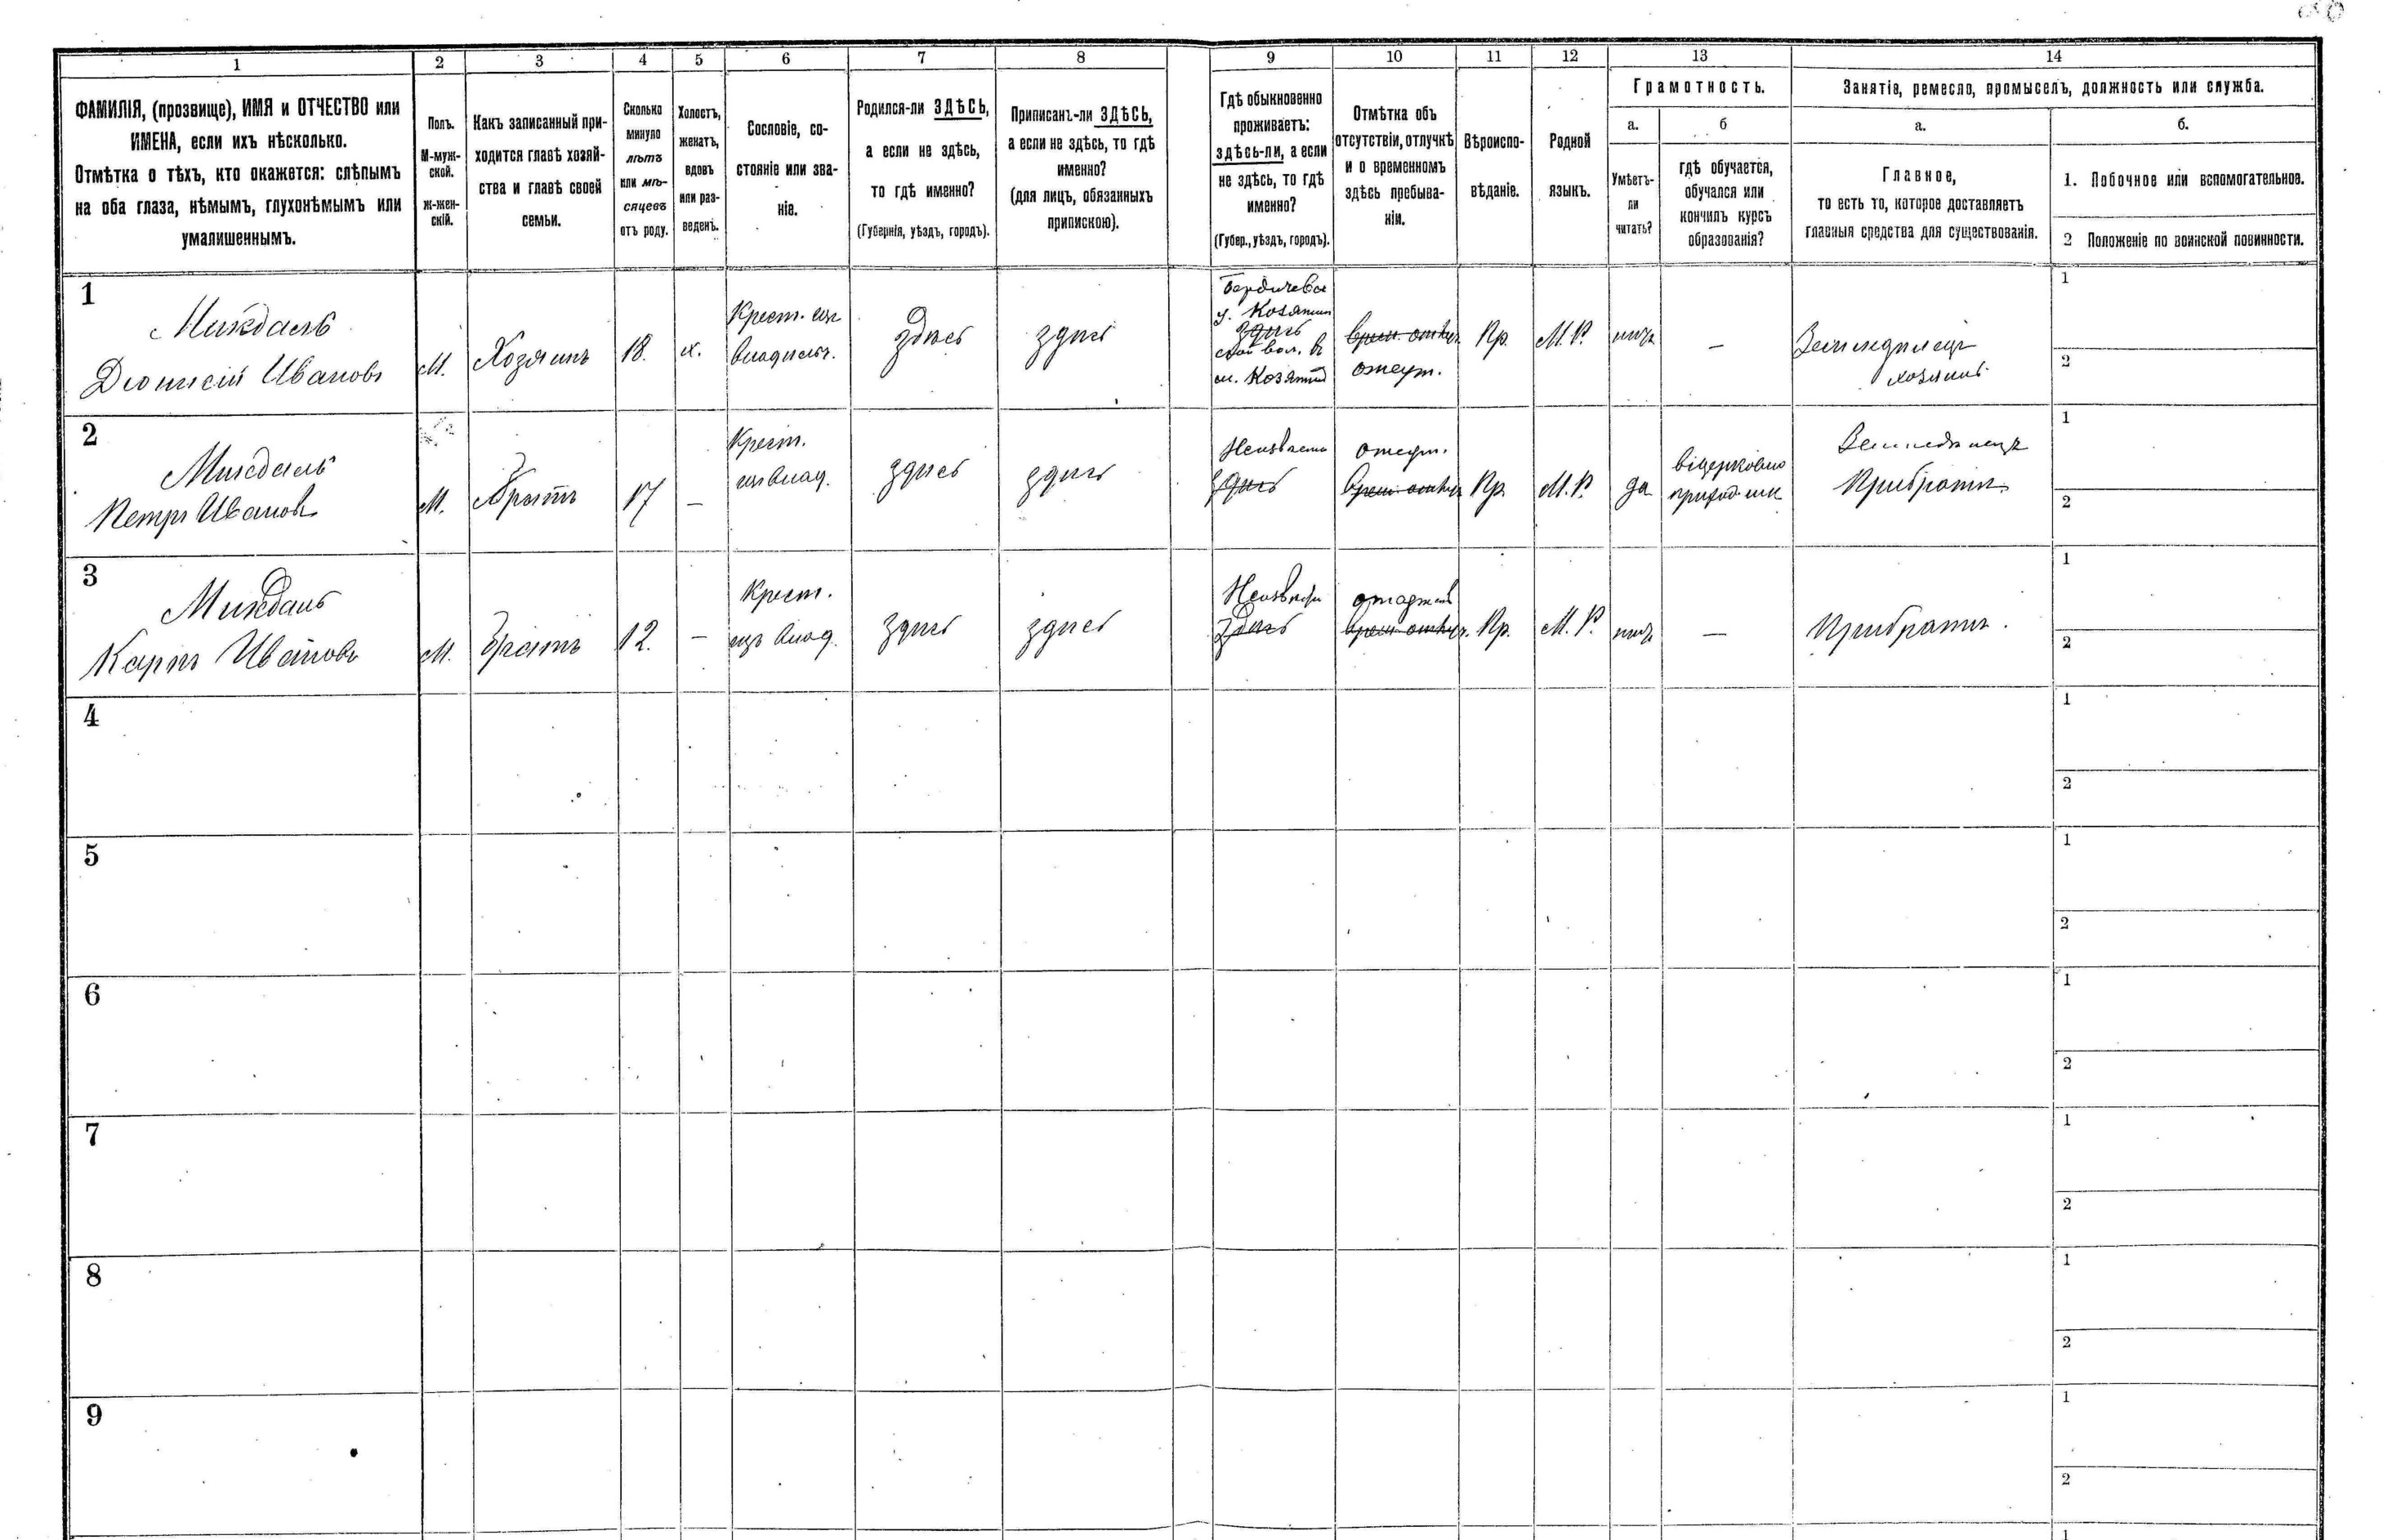 1
2
3
4
5
6
7
8
9
10
11
12
13
14
ФАМИЛІЯ, (прозвище), ИМЯ и ОТЧЕСТВО или
ИМЕНА, если ихъ нѣсколько.
Отмѣтка о тѣхъ, кто окажется: слѣпымъ
на оба глаза, нѣмымъ, глухонѣмымъ или
умалишеннымъ.
Полъ.
М-муж-
ской.
ж-жен-
скій.
Какъ записанный при-
ходится главѣ хозяй-
ства и главѣ своей
семьи.
Сколько
минуло
лѣтъ
или мѣ-
сяцевъ
отъ роду.
Холостъ,
женатъ,
вдовъ
или раз-
веденъ.
Сословіе, со-
стояніе или зва-
ніе.
Родился-ли ЗДѢСЬ,
а если не здѣсь,
то гдѣ именно?
(Губернія, уѣздъ, городъ).
Приписанъ-ли ЗДѢСЬ,
а если не здѣсь, то гдѣ
именно?
(для лицъ, обязанныхъ
припискою).
Гдѣ обыкновенно
проживаетъ:
здѣсь-ли, а если
не здѣсь, то гдѣ
именно?
(Губер., уѣздъ, городъ).
Отмѣтка объ
отсутствіи, отлучкѣ
и о временномъ
здѣсь пребыва-
ніи.
Вѣроиспо-
вѣданіе.
Родной
языкъ.
Грамотность.
а.
Умѣетъ-
ли
читать?
б
гдѣ обучается,
обучался или
кончилъ курсъ
образованія?
Занятіе, ремесло, промыселъ, должность или служба.
а.
Главное,
то есть то, которое доставляетъ
главныя средства для существованія.
б.
1. Побочное или вспомогательное.
2 Положеніе по воинской повинности.
1
Мигдаль
Діонисій Ивановъ
М.
Хозяинъ
18.
х.
Крест. изъ
владѣльч.
здѣсь
здѣсь
Бердичевск
у. Козятин
здѣсь
ской вол. въ
м. Козятин
врем. отлуч.
отсут.
Пр.
М. Р.
нѣтъ
—
Земледѣлецъ
хозяинъ
1
2
2
Мигдаль
Петръ Ивановъ
М.
братъ
17
—
Крест.
изъ влад.
здѣсь
здѣсь
Неизвѣстно
здѣсь
отсут.
врем. отлуч.
Пр.
М. Р.
да
въ церковно
приход. шк
Земледѣлецъ
При братѣ.
1
2
3
Мигдаль
Карпъ Ивановъ
М.
братъ
12.
—
Крест.
изъ влад.
здѣсь
здѣсь
здѣсь
врем. отлуч.
Пр.
М. Р.
нѣтъ
—
При братѣ.
1
2
4
1
2
5
1
2
6
1
2
7
1
2
8
1
2
9
1
2
1